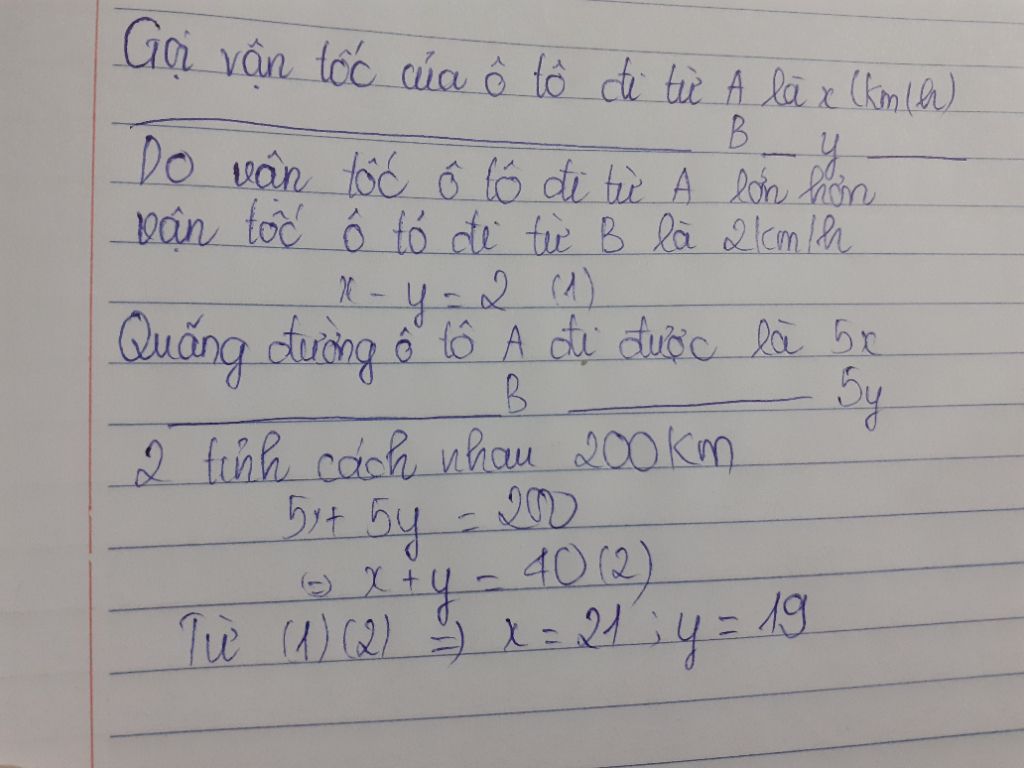 Gọi vận tốc của ô tô đi từ A là x (km/h)
B y
Do vận tốc ô tô đi từ A lớn hơn
vận tốc ô tô đi từ B là 2km/h
x - y = 2 (1)
Quãng đường ô tô A đi được là 5x
B 5y
2 tỉnh cách nhau 200km
5x + 5y = 200
⇔ x + y = 40 (2)
Từ (1) (2) ⇒ x = 21 ; y = 19